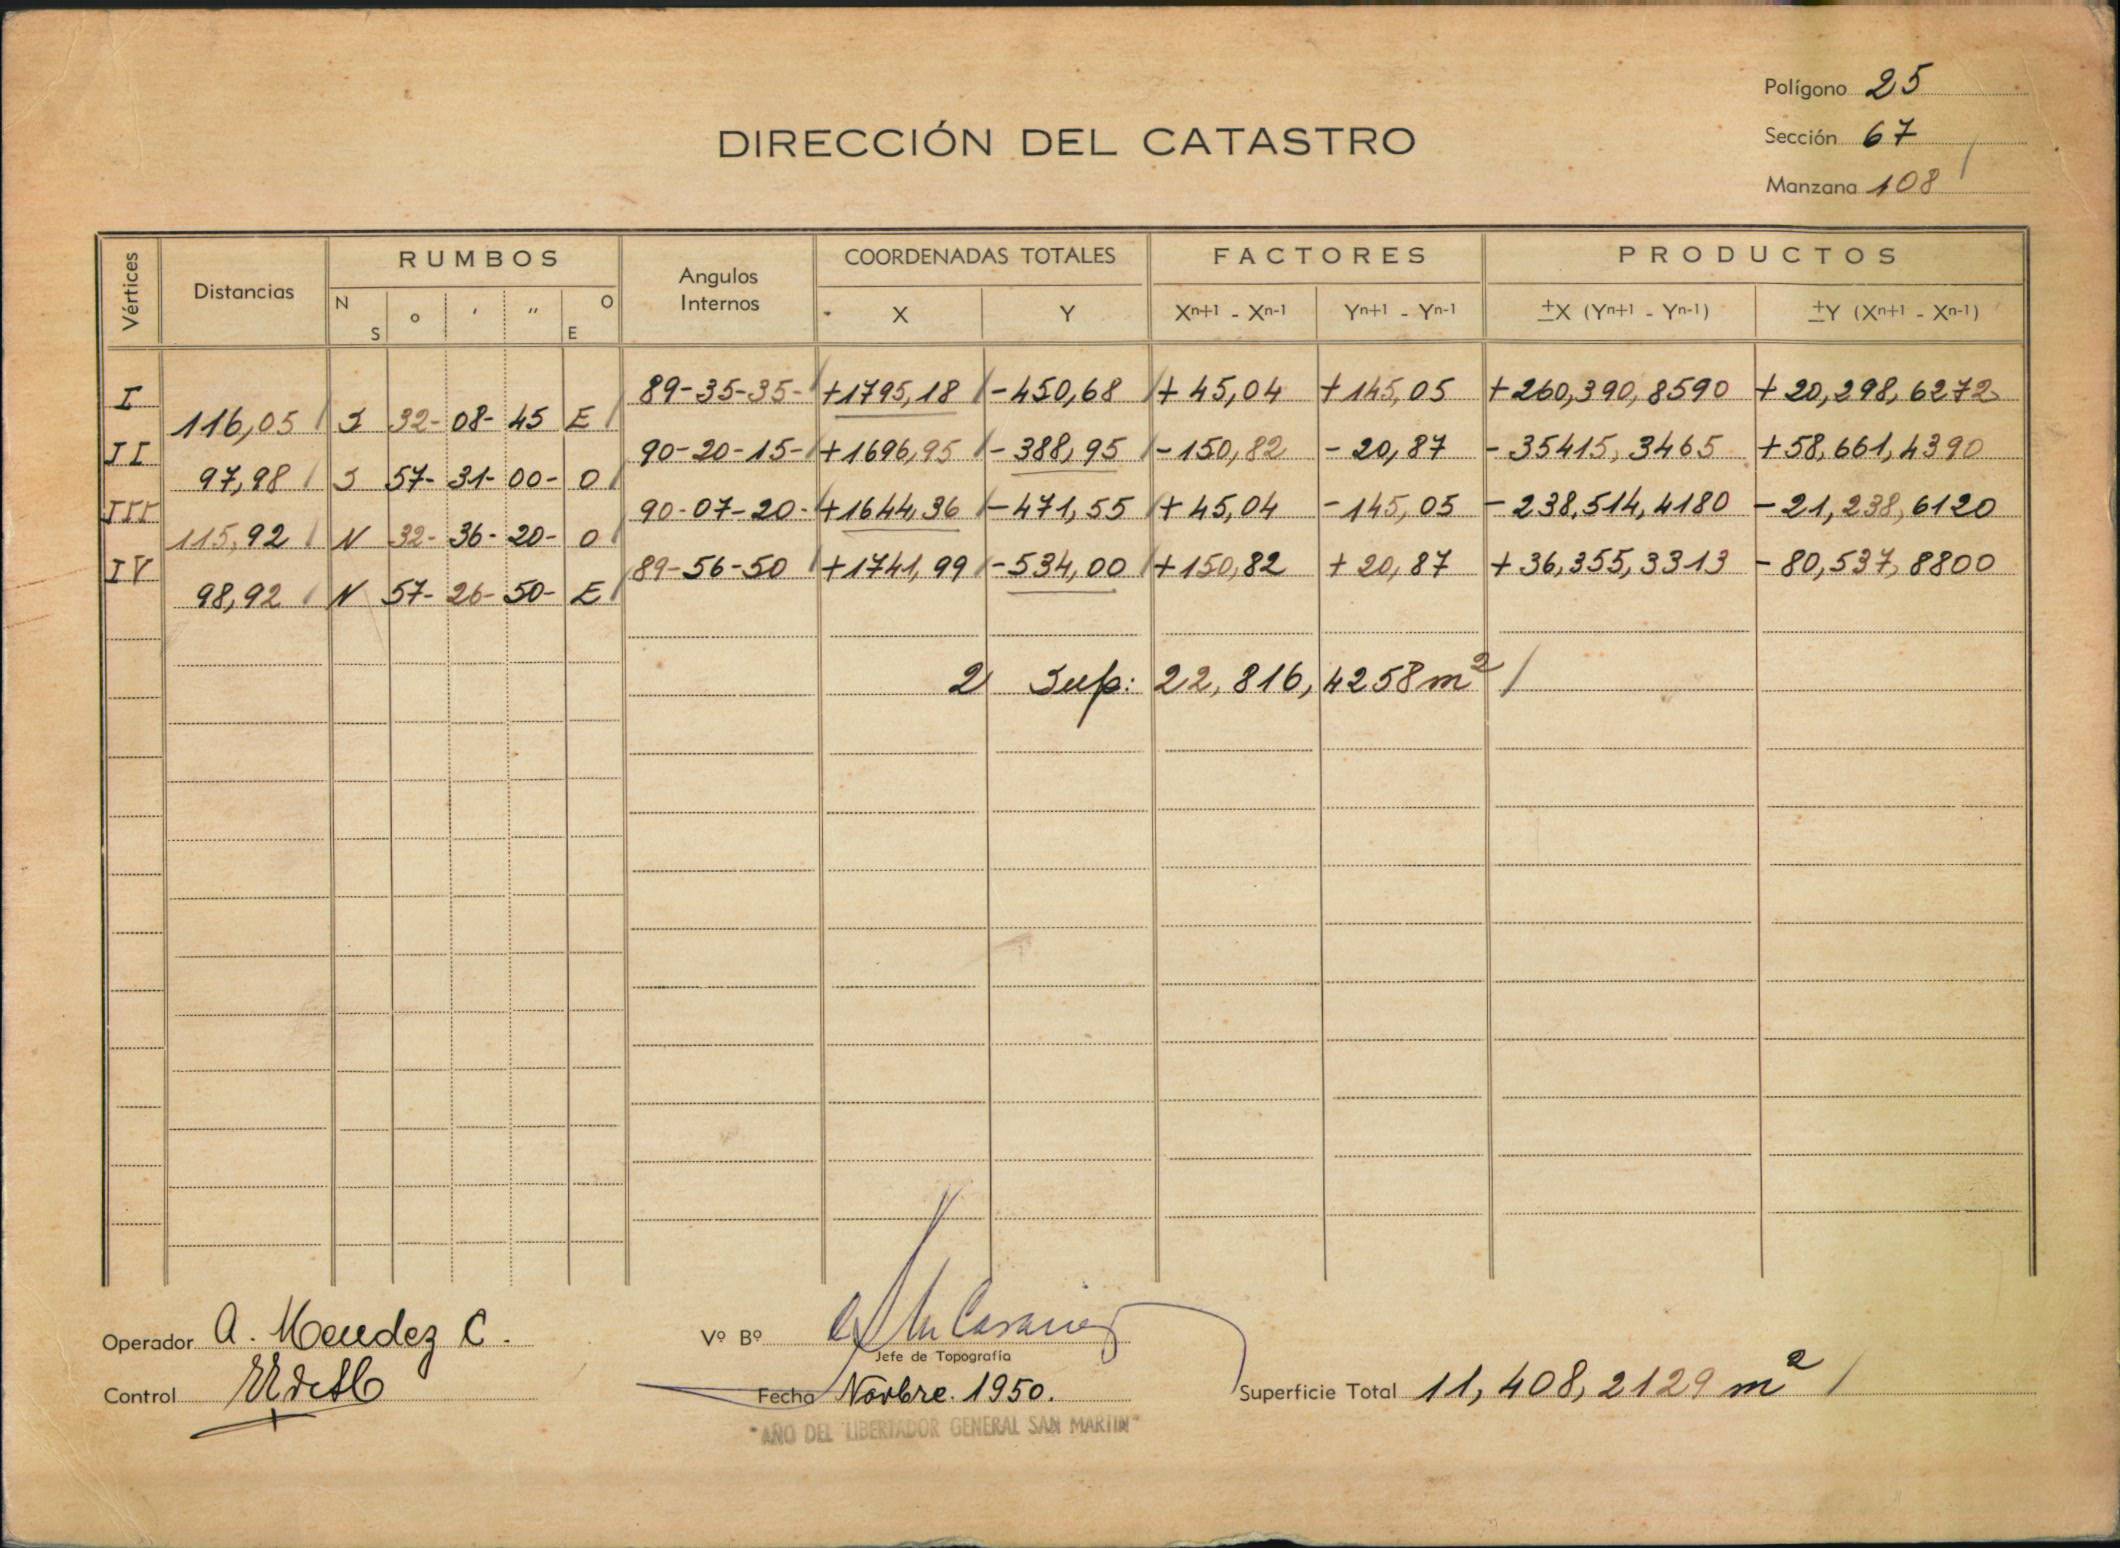 Polígono 25
DIRECCIÓN DEL CATASTRO
Sección 67
Manzana 108
Vértices Distancias RUMBOS Angulos Internos COORDENADAS TOTALES FACTORES PRODUCTOS
N S ° ' " O E X Y Xn+1 - Xn-1 Yn+1 - Yn-1 ±X (Yn+1 - Yn-1) ±Y (Xn+1 - Xn-1)
I 89-35-35- +1795,18 -450,68 +45,04 +145,05 +260,390,8590 +20,298,6272
116,05 S 32- 08- 45 E
II 90-20-15- +1696,95 -388,95 -150,82 -20,87 -35415,3465 +58,661,4390
97,98 S 57- 31- 00- O
III 90-07-20- +1644,36 -471,55 +45,04 -145,05 -238,514,4180 -21,238,6120
115,92 N 32- 36- 20- O
IV 89-56-50 +1741,99 -534,00 +150,82 +20,87 +36,355,3313 -80,537,8800
98,92 N 57- 26- 50- E
2 Sup: 22,816,4258 m²
Operador A. Mendez C.
Vº Bº
Jefe de Topografía
Control
Fecha Novbre. 1950.
Superficie Total 11,408,2129 m²
"AÑO DEL LIBERTADOR GENERAL SAN MARTIN"